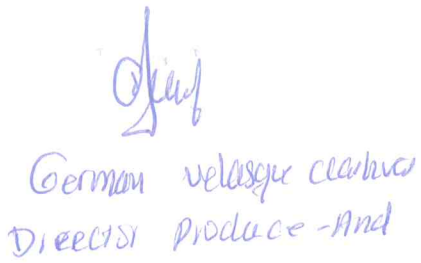 German Velasque
Director Produce-And